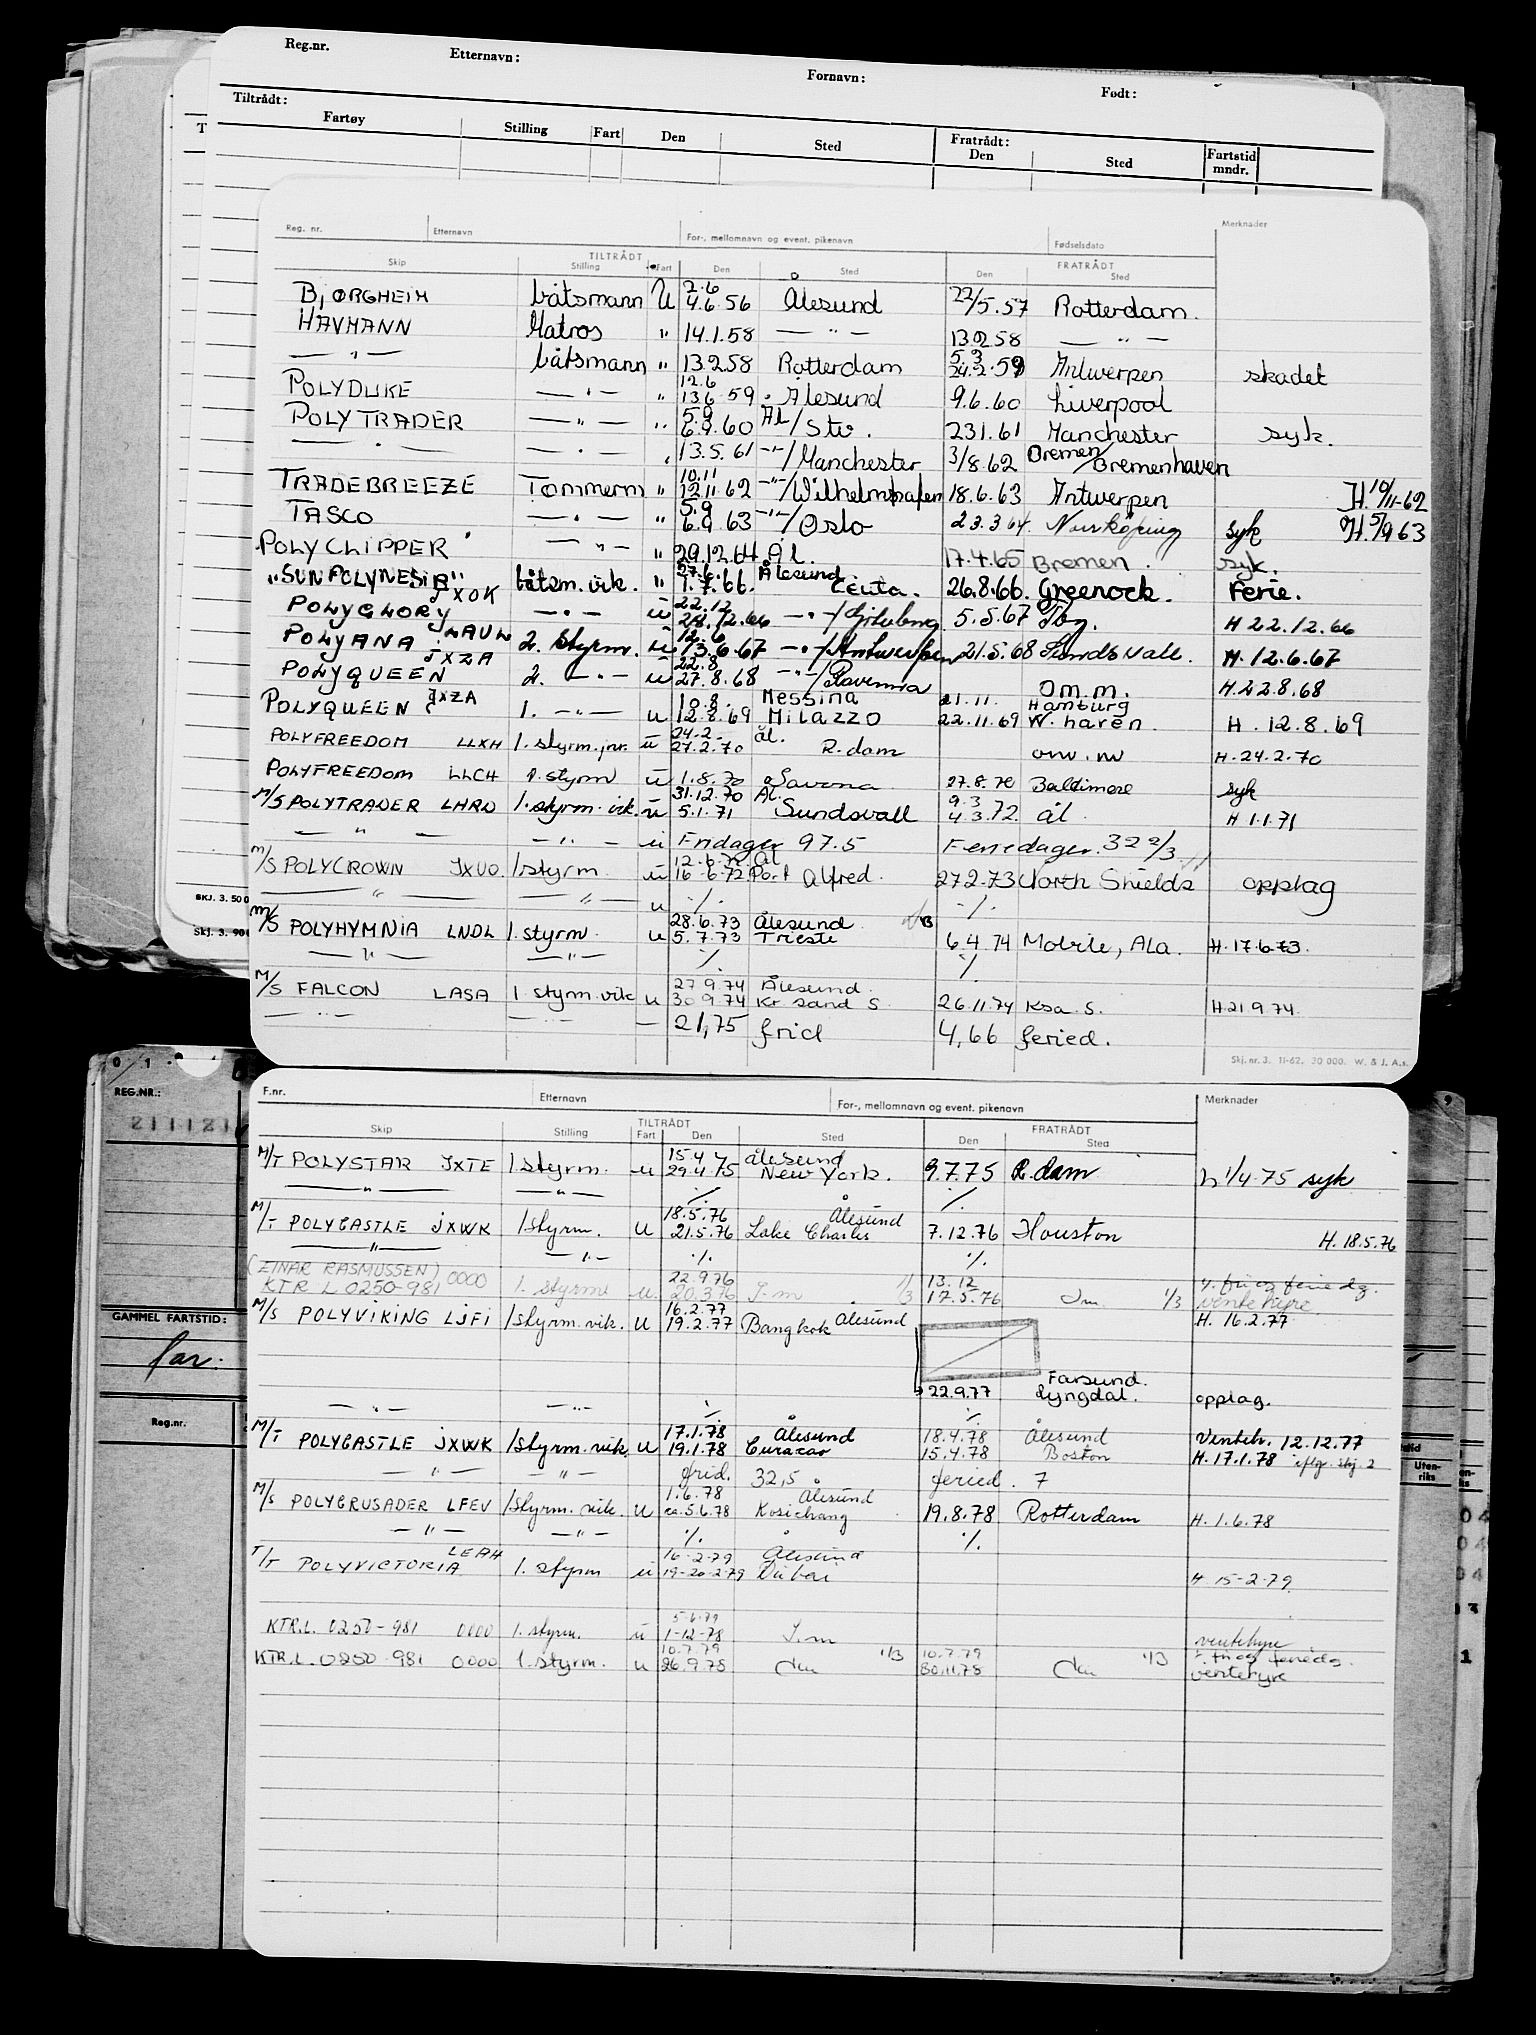 Reg.nr. Etternavn: Fornavn: Født:
Tiltrådt: Fratrådt:
Fartøy Stilling Fart Den Sted Den Sted Fartstid mndr.
Reg. nr. Etternavn For-, mellomnavn og event. pikenavn Fødselsdato Merknader
TILTRÅDT FRATRÅDT
Skip Stilling Fart Den Sted Den Sted
BJØRGHEIM båtsmann U 2.6 4.6.56 Ålesund 22/5.57 Rotterdam.
HAVMANN Matros " 14.1.58 — " — 13.2.58 — " —
— " — båtsmann " 13.2.58 Rotterdam 5.3 24.2.59 Antwerpen skadet
POLYDUKE — " — " 12.6 13.6.59 Ålesund 9.6.60 Liverpool
POLYTRADER — " — " 5.9 6.9.60 Ål/Stv. 23.1.61 Manchester syk.
— " — — " — " 13.5.61 -"-/Manchester 3/8.62 Bremen/Bremenhaven
TRADEBREEZE Tømmerm " 10.11 12.11.62 -"-/Wilhelmshafen 18.6.63 Antwerpen H.10/11-62
TASCO — " — " 5.9 6.9.63 -"-/Oslo 23.3.64. Norrköping syk H.5/9 63
POLYCLIPPER — " — " 29.12.64 Ål. 17.4.65 Bremen. syk.
"SUNPOLYNESIA" JXOK båtsm. vik. " 27.6. 1.7.66. Ålesund Ceuta. 26.8.66. Greenock. Ferie.
POLYGLORY LAUW — " — u 22.12 28.12.66 — " —/Göteborg 5.5.67 Tbg. H 22.12.66
POLYANA JXZA 2. styrm. u 12.6 13.6.67 — " —/Antwerpen 21.5.68 Sundsvall. H. 12.6.67
POLYQUEEN 2. — " — u 22.8 27.8.68 — " —/Ravenna om.m. H.22.8.68
POLYQUEEN JXZA 1. — " — u 10.8. 12.8.69 Messina Milazzo 21.11. 22.11.69 Hamburg W. haven H. 12.8.69
POLYFREEDOM LLXH 1. styrm. jnr. u 24.2. 27.2.70 ål. R.dam om. m H.24.2.70
POLYFREEDOM LLCH 1. styrm u 1.8.70 Savona 27.8.70 Baltimore syk
M/S POLYTRADER LHRD 1. styrm. vik. u 31.12.70 5.1.71 Ål. Sundsvall 9.3 4.3.72 ål H 1.1.71
— " — — " — u Fridager 97.5 Feriedager. 32 2/3
M/S POLYCROWN JXUO 1.styrm. u 12.6.72 16.6.72 Ål Port Alfred. 27.2.73 North Shields opplag
— " — — " — u ./. ./.
M/S POLYHYMNIA LNDL 1. styrm. u 28.6.73 5.7.73 Ålesund Trieste 6.4.74 Mobile, Ala. H.17.6.73.
— " — — " — ./. ./.
M/S FALCON LASA 1. styrm. vik u 27.9.74 30.9.74 Ålesund. Kr sand S 26.11.74 Ksa. S. H.21 9 74.
— " — — " — — 21,75 frid 4,66 feried.
SKJ. 3. 50 0
Skj. 3. 90 0
Skj. nr. 3. 11-62. 30 000. W. & J. A.s.
REG.NR.:
GAMMEL FARTSTID:
Reg.nr.
Uten-riks
F.nr. Etternavn For-, mellomnavn og event. pikenavn Merknader
TILTRÅDT FRATRÅDT
Skip Stilling Fart Den Sted Den Sted
M/T POLYSTAR JXTE 1 styrm. u 15.4 29.4.75 Ålesund New York. 9.7.75 R.dam h 1/4.75 syk
— " — — " — ./. ./.
M/T POLYCASTLE JXWK 1styrm. u 18.5.76 21.5.76 Ålesund Lake Charles 7.12.76 Houston H. 18.5.76
— " — — " — ./. ./.
(EINAR RASMUSSEN) KTR L 0250-981 0000 1. styrm u. 22.9.76 20.3.76 I.m 1/3 13.12 17.5.76 I m 1/3 v. fri og ferie dg. ventehyre
M/S POLYVIKING LJFI 1styrm. vik. u 16.2.77 19.2.77 Ålesund Bangkok H. 16.2.77
22.9.77 Farsund. Lyngdal. opplag.
— " — — " — ./. ./.
M/T POLYCASTLE JXWK 1styrm. vik. u 17.1.78 19.1.78 Ålesund Curacao 18.4.78 15.4.78 Ålesund Boston Venteh. 12.12.77 H. 17.1.78 iflg. skj. 2
— " — — " — frid. 32,5 feried. 7
M/S POLYCRUSADER LFEV 1styrm. vik. u 1.6.78 ca. 5.6.78 Ålesund Kosichang 19.8.78 Rotterdam H. 1.6.78
— " — — " — ./. ./.
T/T POLYVICTORIA LEAH 1. styrm u 16-2-79 19-20-2-79 Ålesund Dubai H 15-2-79
KTR.L. 0250-981 0000 1. styrm. u 5-6-79 1-12-78 I.m ventehyre
KTR.L. 0250 981 0000 1. styrm. u 10.7.79 26.9.78 1/3 10.7.79 30.11.78 1/3 v. fri og feriedg. ventehyre